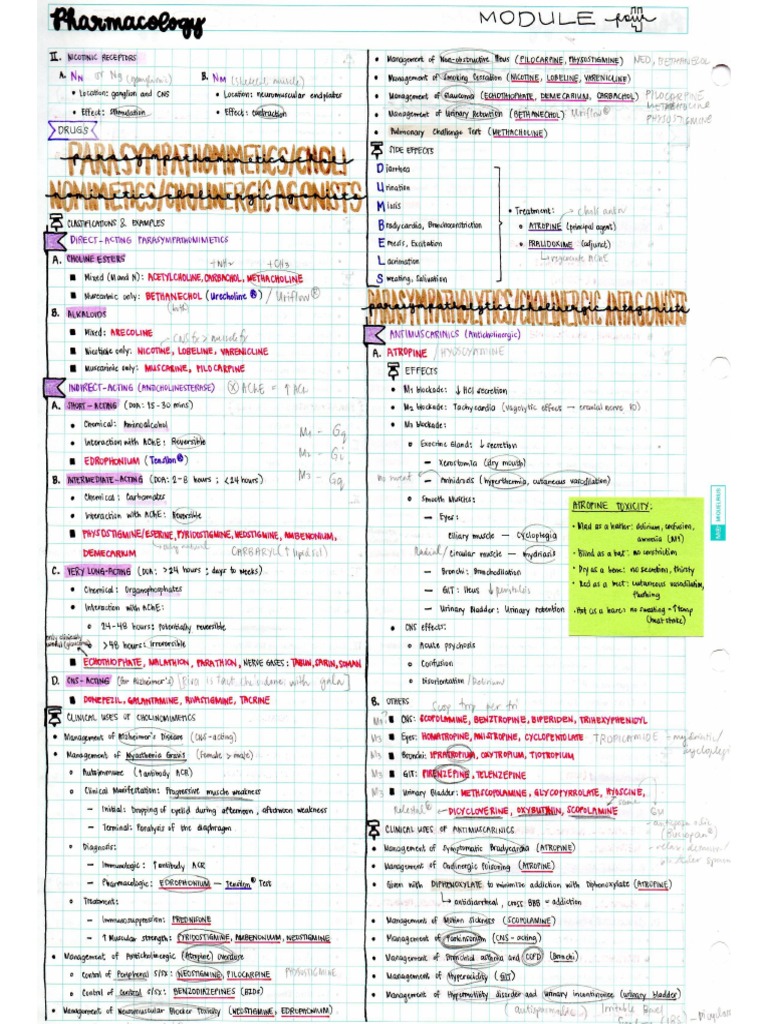 Pharmacology
MODULE four
II. NICOTINIC RECEPTORS
A. NN or NG (ganglionic)
• Location: ganglion and CNS
• Effect: Stimulation
B. NM (skeletal muscle)
• Location: neuromuscular endplates
• Effect: Contraction
DRUGS
PARASYMPATHOMIMETICS/CHOLI
NOMIMETICS/CHOLINERGIC AGONISTS
CLASSIFICATIONS & EXAMPLES
DIRECT-ACTING PARASYMPATHOMIMETICS
A. CHOLINE ESTERS
+NH2 +CH3
■ Mixed (M and N): ACETYLCHOLINE, CARBACHOL, METHACHOLINE
■ Muscarinic only: BETHANECHOL (Urecholine ®) / Uriflow®
B. ALKALOIDS
(both)
■ Mixed: ARECOLINE
■ Nicotinic only: NICOTINE, LOBELINE, VARENICLINE
■ Muscarinic only: MUSCARINE, PILOCARPINE
INDIRECT-ACTING (ANTICHOLINESTERASE) (X) AChE = ↑ACh
A. SHORT-ACTING (DOA: 15-30 mins)
• Chemical: Aminoalcohol
• Interaction with AChE: Reversible
■ EDROPHONIUM (Tensilon®)
M1 - Gq
M2 - Gi
M3 - Gq
B. INTERMEDIATE-ACTING (DOA: 2-8 hours; <24 hours)
• Chemical: Carbamates
• Interaction with AChE: Reversible
■ PHYSOSTIGMINE/ESERINE, PYRIDOSTIGMINE, NEOSTIGMINE, AMBENONIUM,
DEMECARIUM only natural CARBARYL (↑ lipid sol)
C. VERY LONG-ACTING (DOA: >24 hours; days to weeks)
• Chemical: Organophosphates
• Interaction with AChE:
○ 24-48 hours: potentially reversible
○ >48 hours: irreversible
only clinically useful (glaucoma)
■ ECHOTHIOPHATE, MALATHION, PARATHION, NERVE GASES: TABUN, SARIN, SOMAN
D. CNS-ACTING (for Alzheimer's)
■ DONEPEZIL, GALANTAMINE, RIVASTIGMINE, TACRINE
CLINICAL USES OF CHOLINOMIMETICS
• Management of Alzheimer's Disease (CNS-acting)
• Management of Myasthenia Gravis (female > male)
○ Autoimmune (↑antibody ACR)
○ Clinical Manifestation: Progressive muscle weakness
– Initial: Drooping of eyelid during afternoon, afternoon weakness
– Terminal: Paralysis of the diaphragm
○ Diagnosis:
– Immunologic: ↑antibody ACR
– Pharmacologic: EDROPHONIUM — Tensilon® Test
○ Treatment:
– Immunosuppression: PREDNISONE
– ↑ Muscular strength: PYRIDOSTIGMINE, AMBENONIUM, NEOSTIGMINE
• Management of Anticholinergic (Atropine) Overdose
○ Control of Peripheral S/Sx: NEOSTIGMINE, PILOCARPINE PHYSOSTIGMINE
○ Control of Central S/Sx: BENZODIAZEPINES (BZDs)
• Management of Neuromuscular Blocker Toxicity (NEOSTIGMINE, EDROPHONIUM)
• Management of Non-obstructive Ileus (PILOCARPINE, PHYSOSTIGMINE) NEO, BETHANECOL
• Management of Smoking Cessation (NICOTINE, LOBELINE, VARENICLINE)
• Management of Glaucoma (ECHOTHIOPHATE, DEMECARIUM, CARBACHOL) PILOCARPINE
PHYSOSTIGMINE
• Management of Urinary Retention (BETHANECHOL) Uriflow®
• Pulmonary Challenge Test (METHACHOLINE)
SIDE EFFECTS
Diarrhea
Urination
Miosis
Bradycardia, Bronchoconstriction
Emesis, Excitation
Lacrimation
Sweating, Salivation
• Treatment:
○ ATROPINE (principal agent)
○ PRALIDOXIME (adjunct)
regenerate AChE
PARASYMPATHOLYTICS/CHOLINERGIC ANTAGONISTS
ANTIMUSCARINICS (Anticholinergic)
A. ATROPINE / HYOSCYAMINE
EFFECTS
• M1 blockade: ↓ HCl secretion
• M2 blockade: Tachycardia (vagolytic effect — cranial nerve 10)
• M3 blockade:
○ Exocrine Gland: ↓ secretion
– Xerostomia (dry mouth)
no sweat – Anhidrosis (hyperthermia, cutaneous vasodilation)
○ Smooth Muscles:
– Eyes:
ciliary muscle — cycloplegia
Radial/ circular muscle — mydriasis
– Bronchi: Bronchodilation
– GIT: Ileus ↓ peristalsis
– Urinary Bladder: Urinary retention
• CNS effects:
○ Acute psychosis
○ Confusion
○ Disorientation / Delirium
ATROPINE TOXICITY:
• Mad as a hatter: delirium, confusion,
amnesia (M1)
• Blind as a bat: no constriction
• Dry as a bone: no secretion, thirsty
• Red as a beet: cutaneous vasodilation,
flushing
• Hot as a hare: no sweating → ↑temp
(heat stroke)
B. OTHERS
■ CNS: SCOPOLAMINE, BENZTROPINE, BIPERIDEN, TRIHEXYPHENIDYL
M3 ■ Eyes: HOMATROPINE, ANISOTROPINE, CYCLOPENTOLATE TROPICAMIDE - mydriatic/
cyclopleg
M3 ■ Bronchi: IPRATROPIUM, OXYTROPIUM, TIOTROPIUM
M3 ■ GIT: PIRENZEPINE, TELENZEPINE
M3 ■ Urinary Bladder: METHSCOPOLAMINE, GLYCOPYRROLATE, HYOSCINE,
same
DICYCLOVERINE, OXYBUTYNIN, SCOPOLAMINE
CLINICAL USES OF ANTIMUSCARINICS
• Management of Symptomatic Bradycardia (ATROPINE)
• Management of Cholinergic Poisoning (ATROPINE)
• Given with DIPHENOXYLATE to minimize addiction with Diphenoxylate (ATROPINE)
↳ antidiarrheal, cross BBB = addiction
• Management of Motion Sickness (SCOPOLAMINE)
• Management of Parkinsonism (CNS-acting)
• Management of Bronchial asthma and COPD (Bronchi)
• Management of Hyperacidity (GIT)
• Management of Hypermotility disorder and Urinary incontinence (urinary bladder)
(antispasmodic) Irritable Bowel